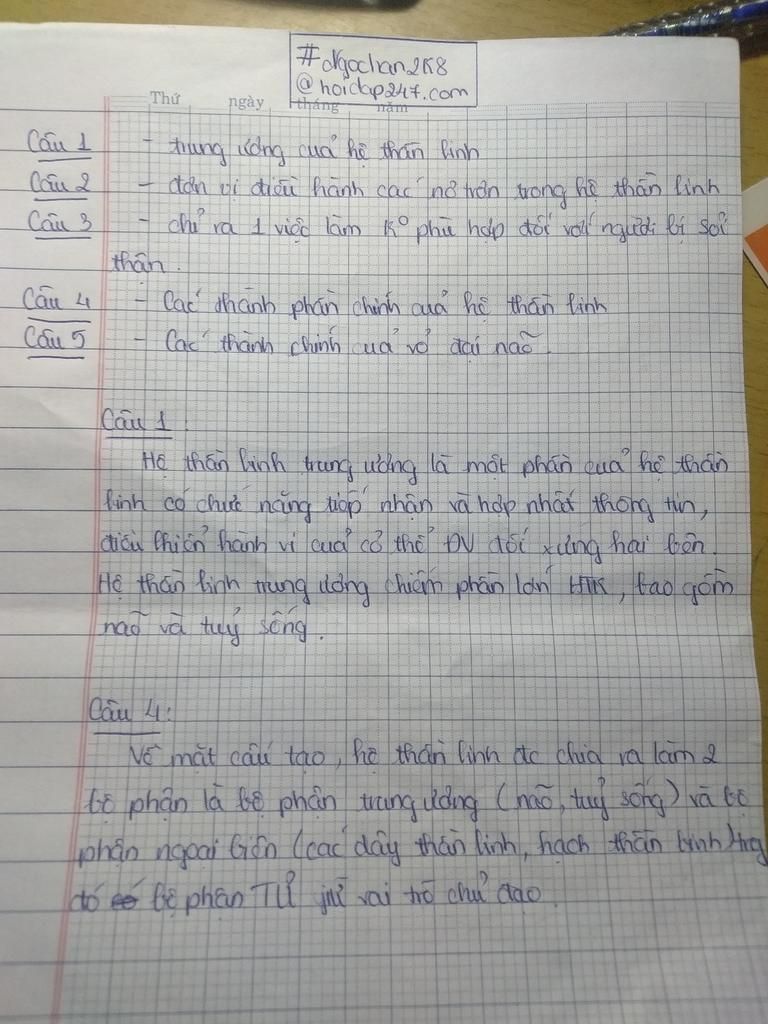 #ngochan2K8
@hoidap247.com
Thứ ngày tháng năm
Câu 1 - trung ương của hệ thần kinh
Câu 2 - đơn vị điều hành các nơ tron trong hệ thần kinh
Câu 3 - chỉ ra 1 việc làm K° phù hợp đối với người bị sỏi
thận.
Câu 4 - Các thành phần chính của hệ thần kinh
Câu 5 - Các thành chính của vỏ đại não.
Câu 1:
Hệ thần kinh trung ương là một phần của hệ thần
kinh có chức năng tiếp nhận và hợp nhất thông tin,
điều khiển hành vi của cơ thể ĐV đối xứng hai bên.
Hệ thần kinh trung ương chiếm phần lớn HTK, bao gồm
não và tuỷ sống.
Câu 4:
Về mặt cấu tạo, hệ thần kinh đc chia ra làm 2
bộ phận là bộ phận trung ương (não, tuỷ sống) và bộ
phận ngoại biên (các dây thần kinh, hạch thần kinh) trg
đó bộ phận TƯ giữ vai trò chủ đạo.